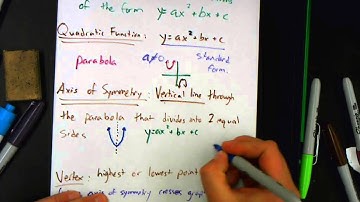 of the form y=ax²+bx+c
Quadratic Function: y=ax²+bx+c
parabola a≠0 standard form.
Axis of Symmetry: Vertical line through
the parabola that divides into 2 equal
sides y=ax²+bx+c
Vertex: highest or lowest point
axis of symmetry crosses